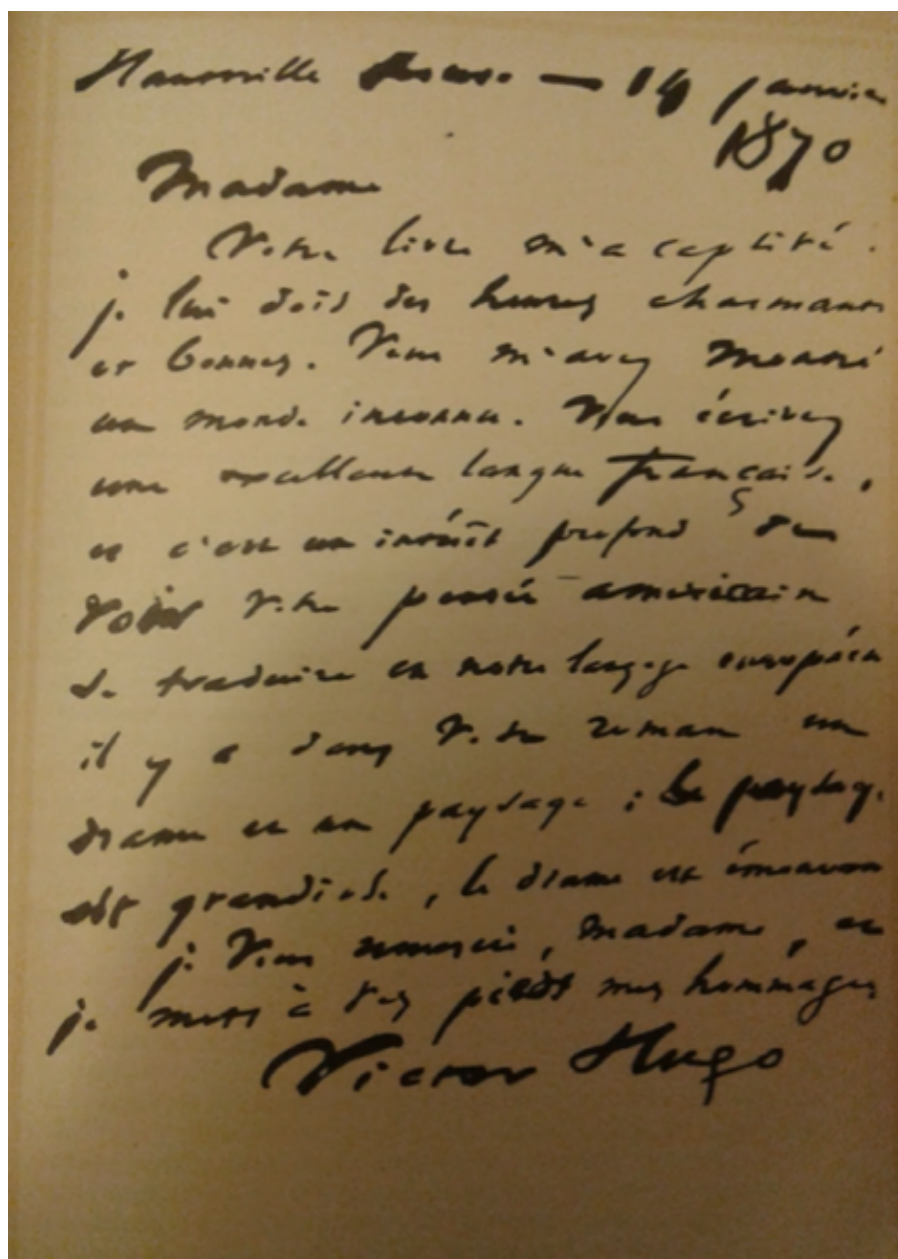 Hauteville House — 14 janvier
1870
Madame
Votre livre m'a captivé.
je lui dois des heures charmantes
et bonnes. Vous m'avez montré
un monde inconnu. Vous écrivez
une excellente langue française,
et c'est un intérêt profond de
voir votre pensée américaine
se traduire en notre langage européen
il y a dans votre roman un
drame et un paysage ; le paysage
est grandiose, le drame est émouvant
je vous remercie, madame, et
je mets à vos pieds mes hommages
Victor Hugo